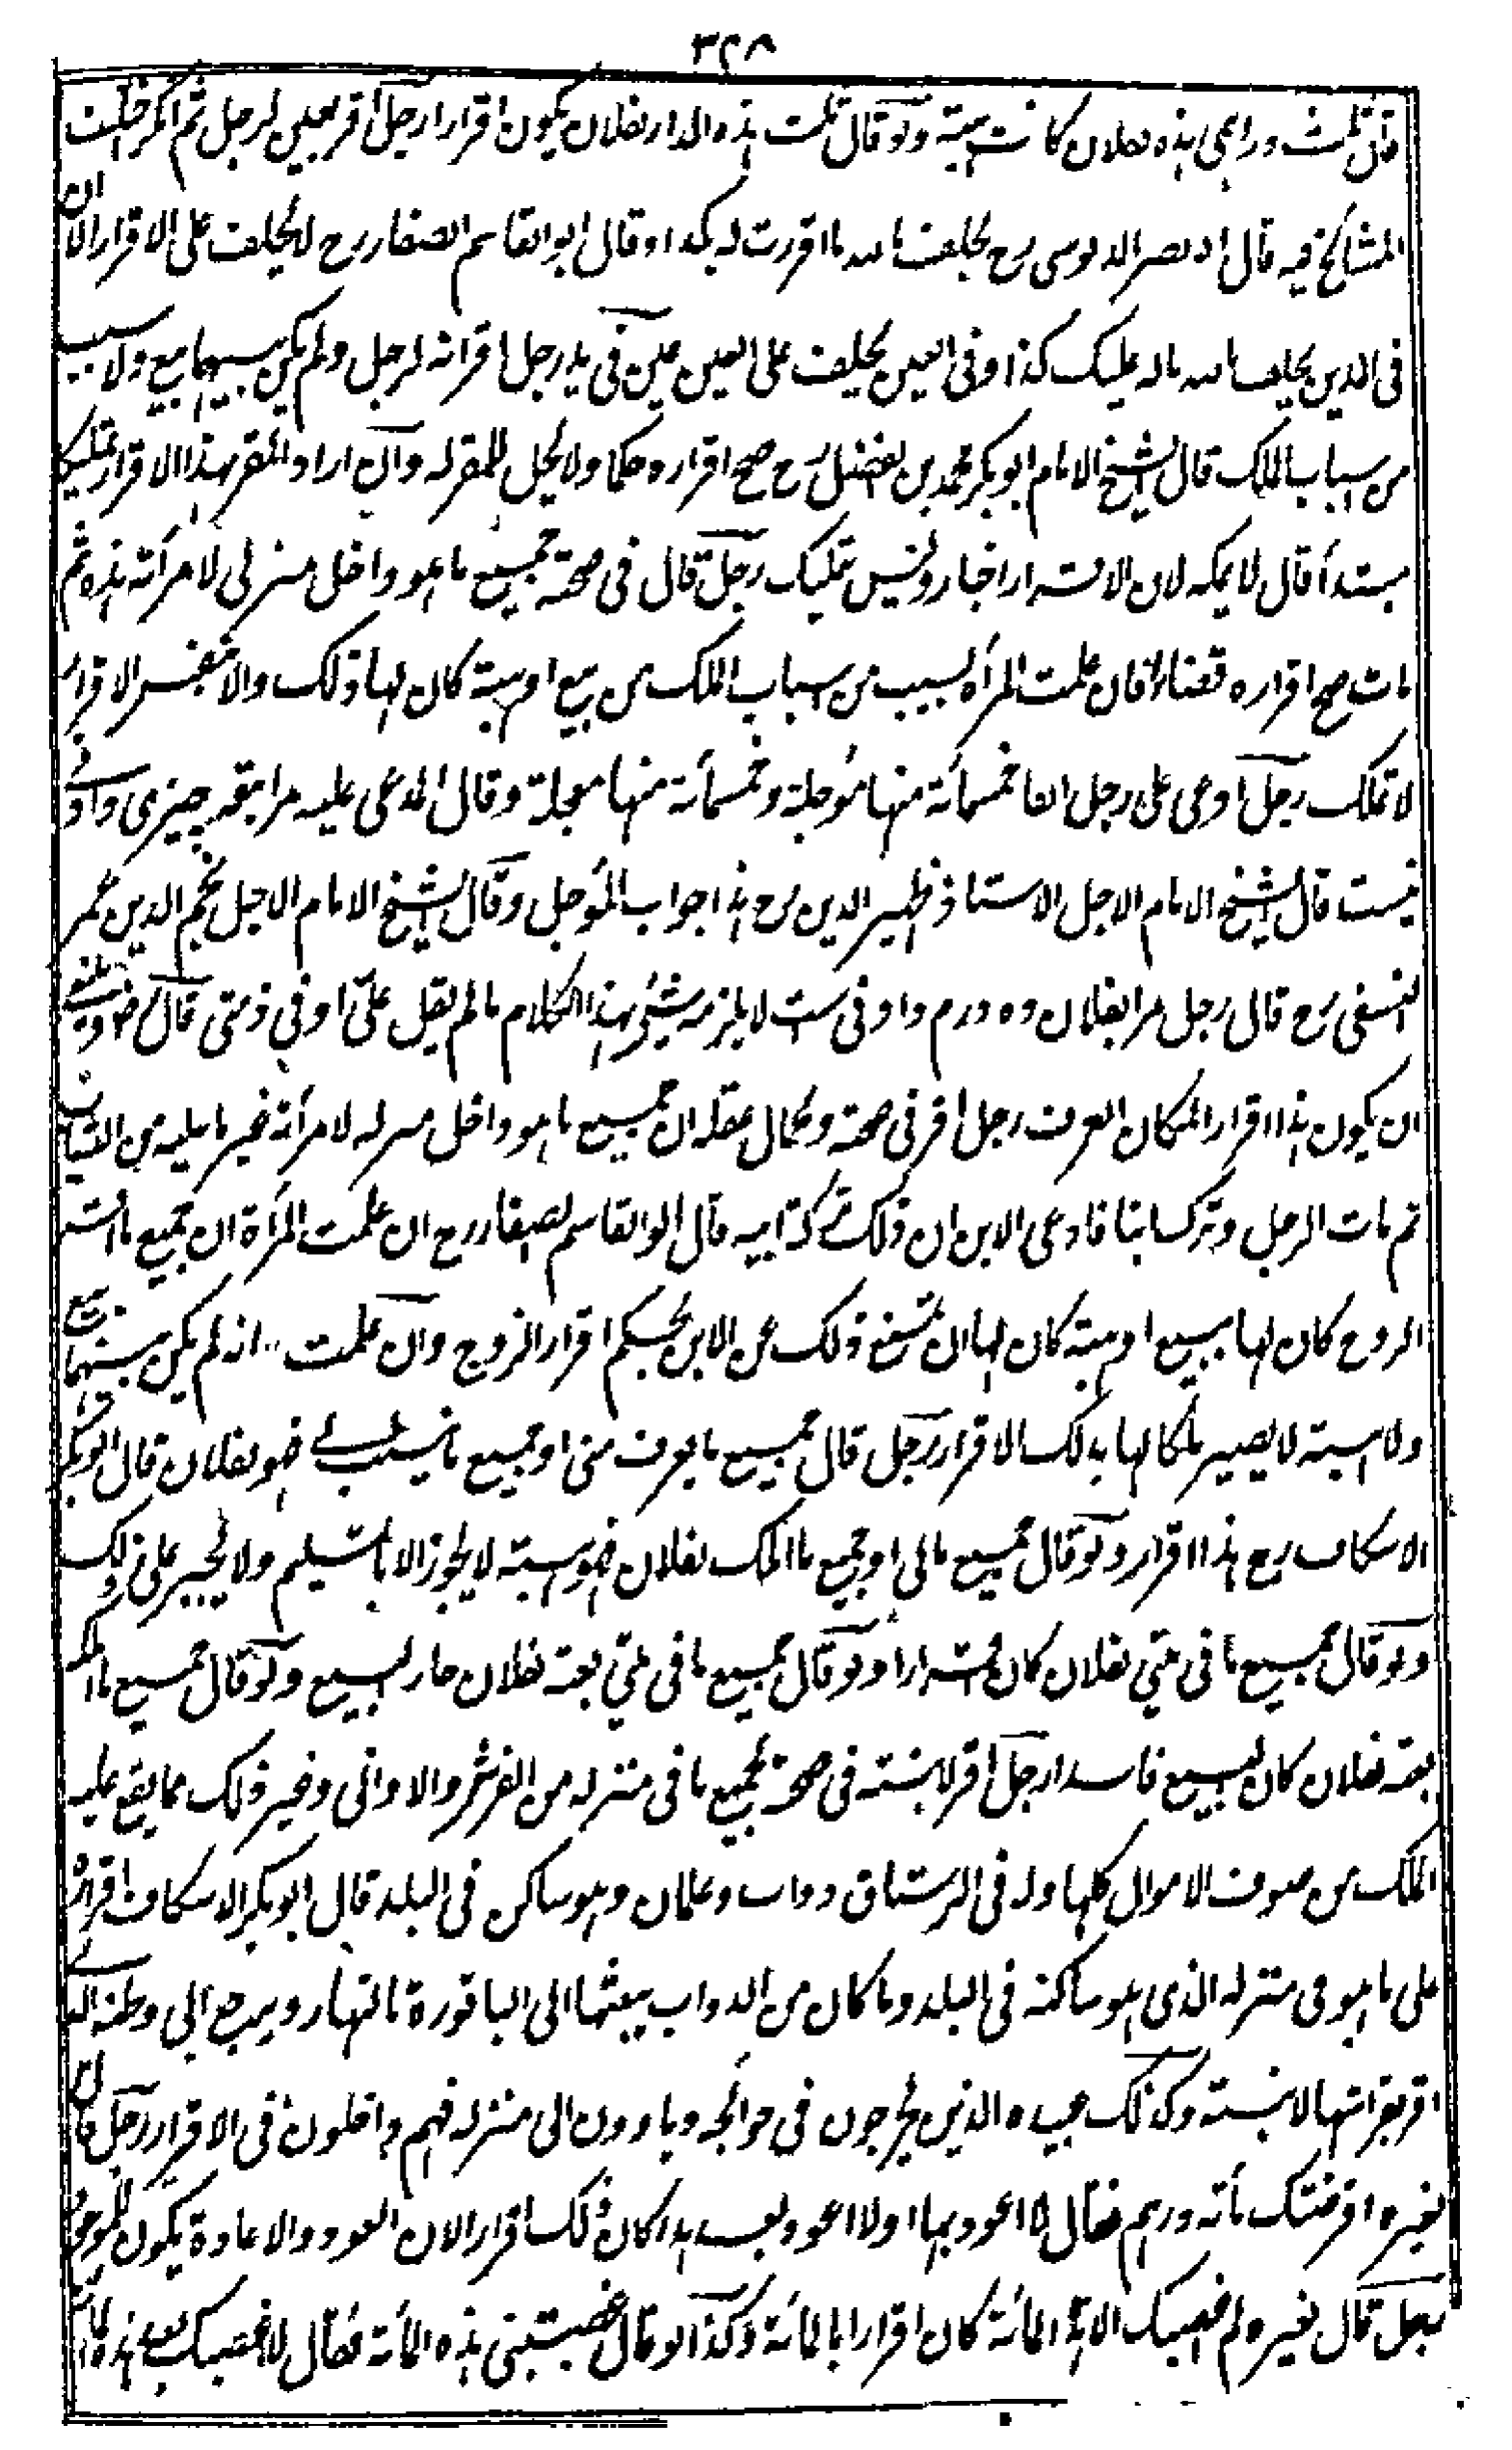 ٣٢٨
قال ثلث دراهمي هذه لفلان كانت هبة ولو قال ثلث هذه الدار لفلان يكون اقرارا رجل أقر بعين لرجل ثم انكر اختلف
المشائخ فيه قال ابو نصر الدبوسي رح يحلف بالله ما اقررت له بكذا وقال ابو القاسم الصفار رح لا يحلف على الاقرار الا ان
في الدين يحلف بالله ماله عليك كذا وفي العين يحلف على العين عين في يد رجل اقر انه لرجل ولم يكن بينهما بيع ولا سبب
من اسباب الملك قال الشيخ الامام ابو بكر محمد بن الفضل رح صح اقراره حكما ولا يحل للمقر له وان اراد المقر بهذا الاقرار تمليكا
مبتدأ قال لا يمكنه لان الاقرار اخبار وليس بتمليك رجل قال في صحته جميع ما هو داخل منزلي لامرأته هذه ثم
مات صح اقراره قضاء فان علمت المرأة لسبب من اسباب الملك من بيع او هبة كان لها ذلك والا فنفس الاقرار
لا تملك رجل ادعى على رجل الفا خمسمائة منها مؤجلة وخمسمائة منها معجلة وقال المدعى عليه مرا بتو چيزى دادنى
نيست قال الشيخ الامام الاجل الاستاذ ظهير الدين رح هذا جواب المؤجل وقال الشيخ الامام الاجل نجم الدين عمر
النسفي رح قال رجل مرا بفلان ده درم دادنى ست لا يلزمه شئ بهذا الكلام ما لم يقل على او في ذمتي قال رض وينبغي
ان يكون هذا اقرار المكان العرف رجل أقر في صحته وكمال عقله ان جميع ما هو داخل منزله لامرأته غير ما عليه من الثياب
ثم مات الرجل وترك ابنا فادعى الابن ان ذلك تركة ابيه قال ابو القاسم الصفار رح ان علمت المرأة ان جميع ما اقر به
الزوج كان لها ببيع او هبة كان لها ان تمنع ذلك عن الابن بحكم اقرار الزوج وان علمت انه لم يكن بينهما بيع
ولا هبة لا يصير ملكا لها بذلك الاقرار رجل قال جميع ما يعرف مني او جميع ما ينسب الي فهو لفلان قال ابو بكر
الاسكاف رح هذا اقرار ولو قال جميع مالي او جميع ما املك لفلان فهو هبة لا يجوز الا بالتسليم ولا يجبر على ذلك
ولو قال جميع ما في بيتي لفلان كان اقرارا ولو قال جميع ما في بيتي بعته لفلان جاز البيع ولو قال جميع ما املك
بعته لفلان كان البيع فاسدا رجل أقر لابنته في صحة بجميع ما في منزله من الفرش والاواني وغير ذلك مما يقع عليه
الملك من صنوف الاموال كلها وله في الرستاق دواب وغلمان وهو ساكن في البلد قال ابو بكر الاسكاف اقراره
على ما هو في منزله الذي هو ساكنه في البلد وما كان من الدواب يبعثها الى الباقورة بالنهار ويرجع الى وطنه الذي
اقر بقراباتها لابنته وكذلك عبيده الذين يخرجون في حوائجه وياوون الى منزله فهم داخلون في الاقرار رجل قال
لغيره اقرضتك مأته درهم فقال لا اعود بها او لا اعود بعد هذا كان ذلك اقرارا لان العود والاعادة يكون للموجود
رجل قال لغيره لم اغصبك الا هذه المائة كان اقرارا بالمائة وكذا لو قال غصبتني هذه المائة فقال لا اغصبك بعد هذه المائة